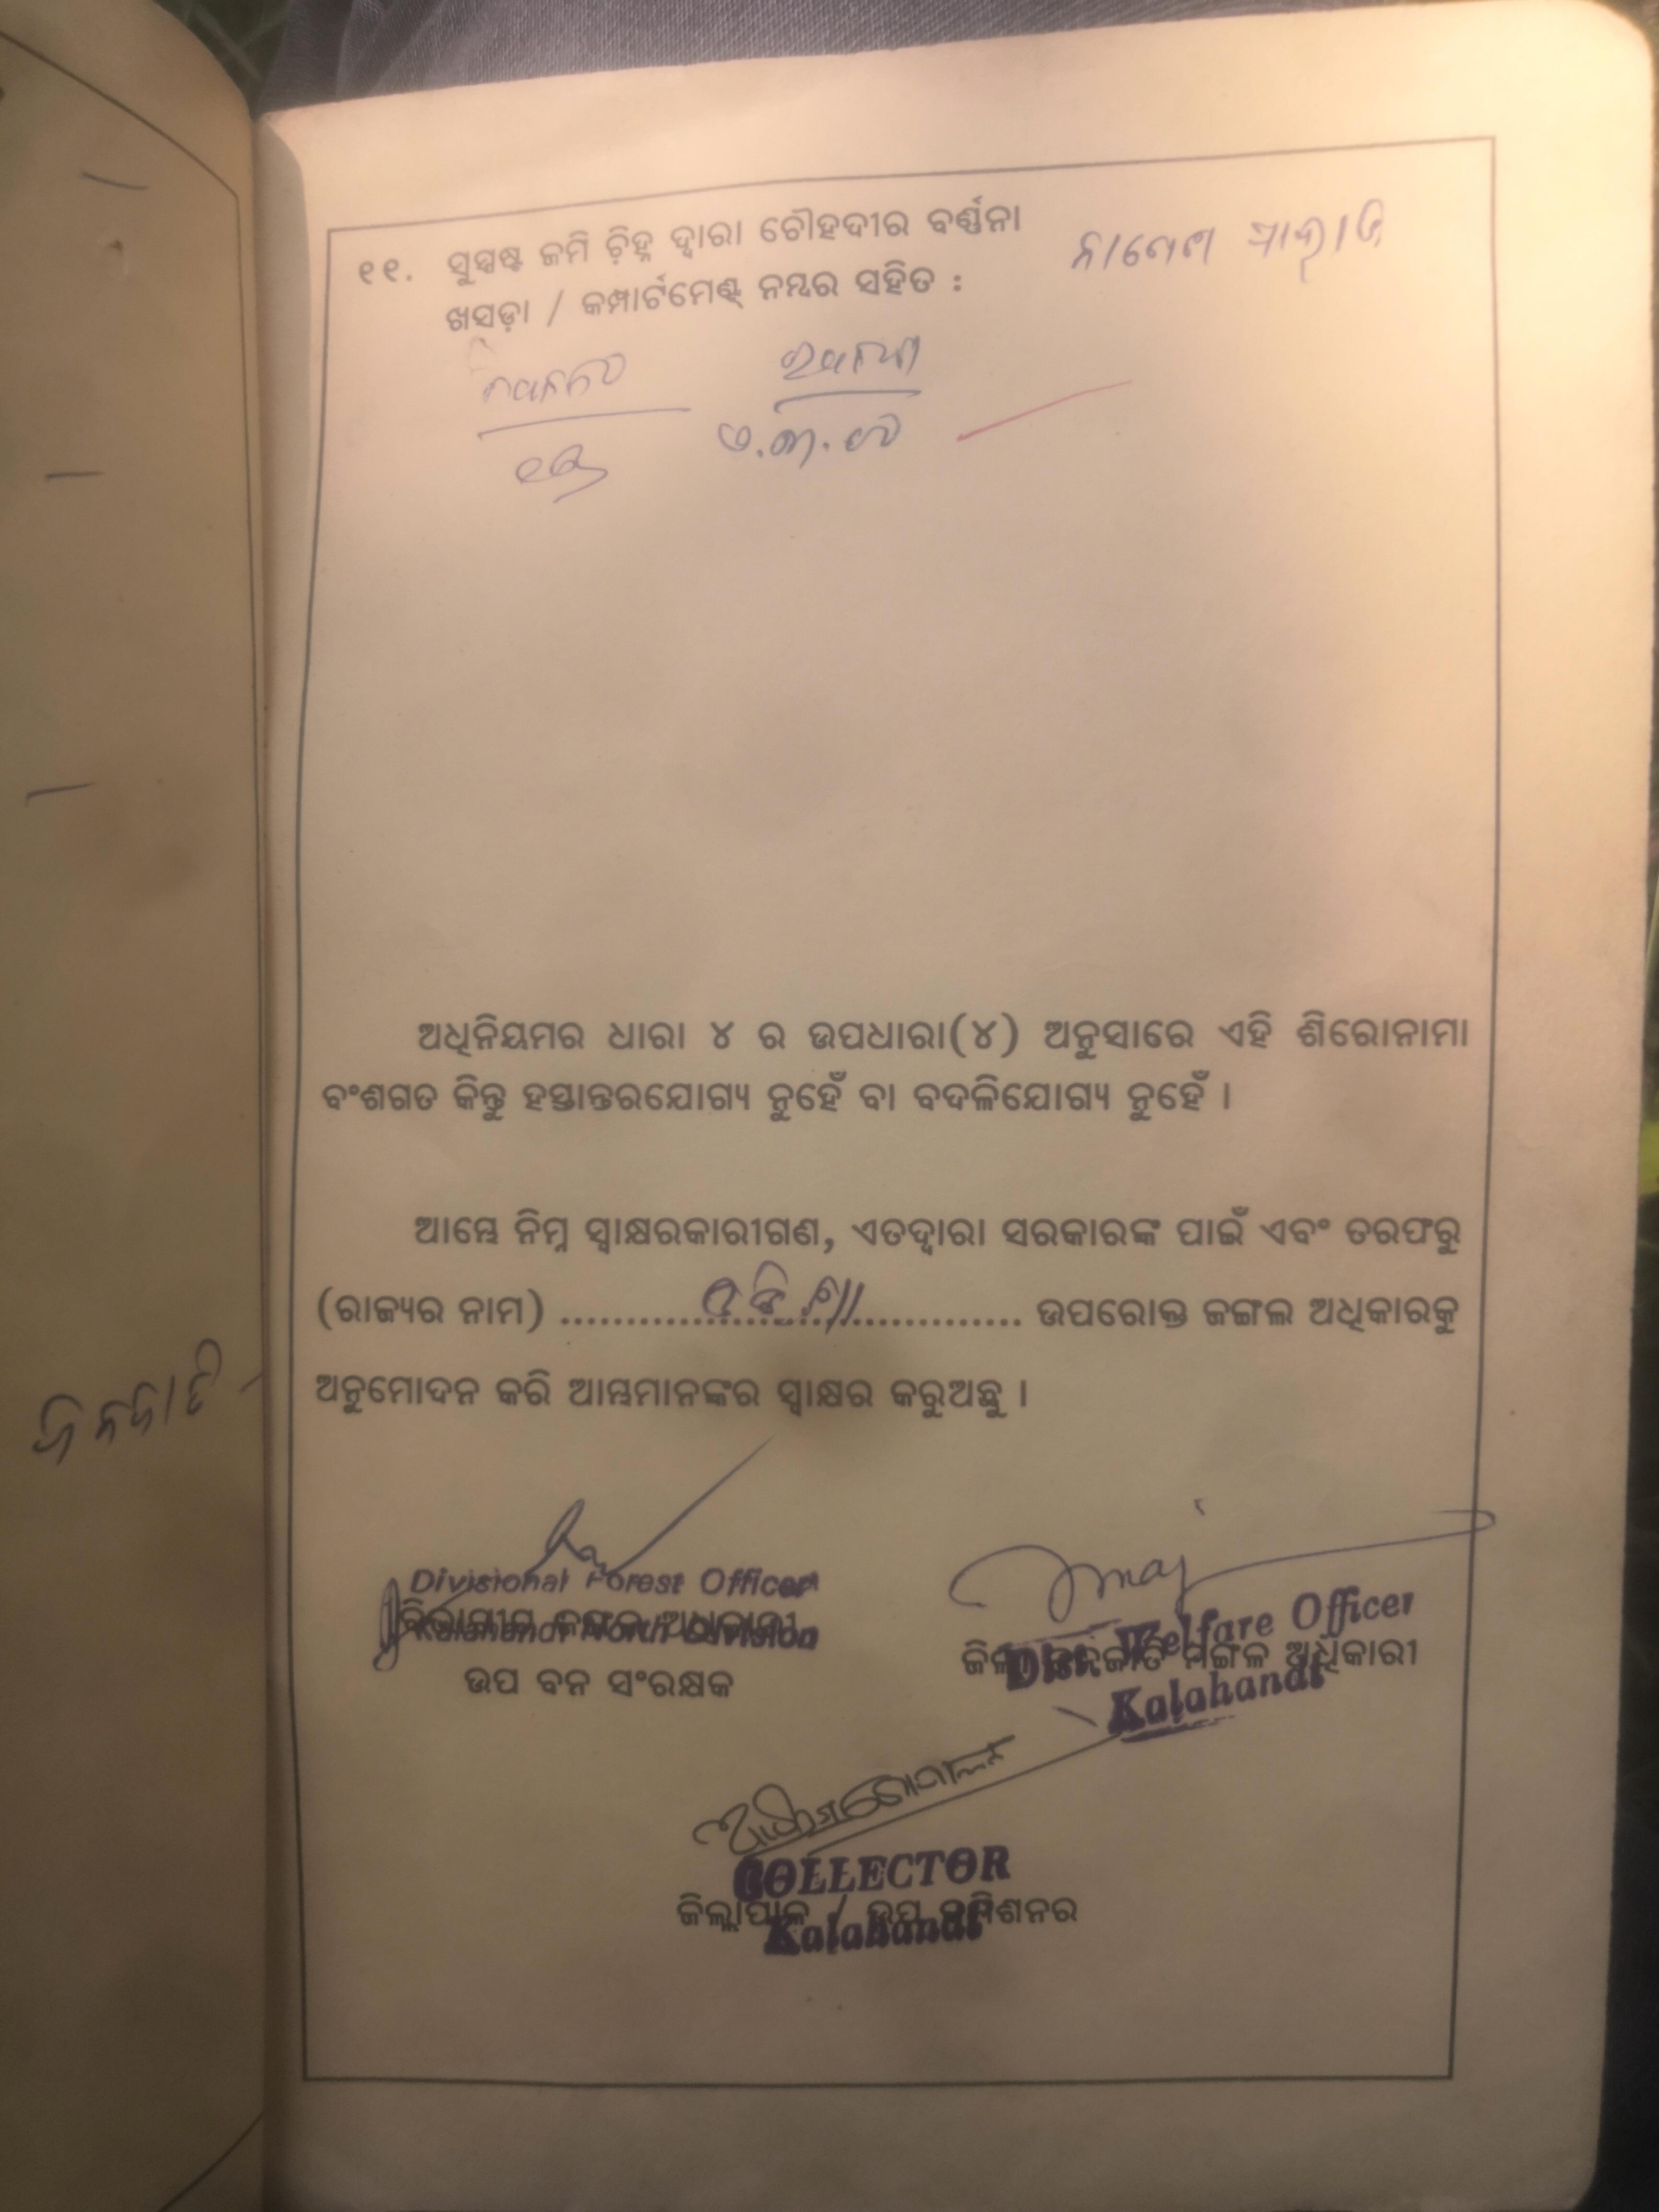 ୧୧. ସୁସ୍ପଷ୍ଟ ଜମି ଚିହ୍ନ ଦ୍ୱାରା ଚୌହଦୀର ବର୍ଣ୍ଣନା
ଖସଡ଼ା / କମ୍ପାର୍ଟମେଣ୍ଟ୍ ନମ୍ବର ସହିତ :
ଅଧିନିୟମର ଧାରା ୪ ର ଉପଧାରା(୪) ଅନୁସାରେ ଏହି ଶିରୋନାମା
ବଂଶଗତ କିନ୍ତୁ ହସ୍ତାନ୍ତରଯୋଗ୍ୟ ନୁହେଁ ବା ବଦଳିଯୋଗ୍ୟ ନୁହେଁ ।
ଆମ୍ଭେ ନିମ୍ନ ସ୍ୱାକ୍ଷରକାରୀଗଣ, ଏତଦ୍ୱାରା ସରକାରଙ୍କ ପାଇଁ ଏବଂ ତରଫରୁ
(ରାଜ୍ୟର ନାମ) ................................... ଉପରୋକ୍ତ ଜଙ୍ଗଲ ଅଧିକାରକୁ
ଅନୁମୋଦନ କରି ଆମ୍ଭମାନଙ୍କର ସ୍ୱାକ୍ଷର କରୁଅଛୁ ।
Divisional Forest Officer
ବିଭାଗୀୟ ଜଙ୍ଗଲ ଅଧିକାରୀ
Kalahandi North Division
ଉପ ବନ ସଂରକ୍ଷକ
Dist. Welfare Officer
ଜିଲ୍ଲା ଜନଜାତି ମଙ୍ଗଳ ଅଧିକାରୀ
Kalahandi
COLLECTOR
ଜିଲ୍ଲାପାଳ / ଉପ କମିଶନର
Kalahandi